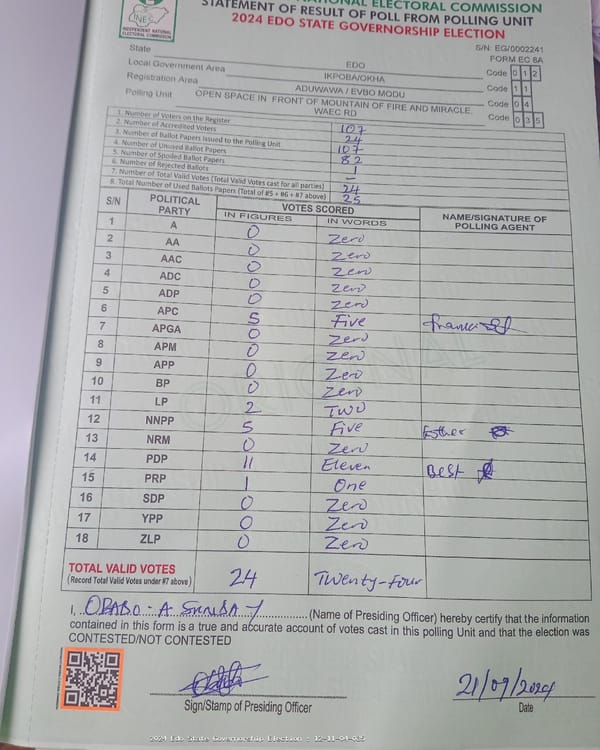 INDEPENDENT NATIONAL ELECTORAL COMMISSION
STATEMENT OF RESULT OF POLL FROM POLLING UNIT
2024 EDO STATE GOVERNORSHIP ELECTION
INEC
INDEPENDENT NATIONAL
ELECTORAL COMMISSION
S/N: EG/0002241
FORM EC 8A
State EDO Code 0 1 2
Local Government Area IKPOBA/OKHA Code 1 1
Registration Area ADUWAWA / EVBO MODU Code 0 4
Polling Unit OPEN SPACE IN FRONT OF MOUNTAIN OF FIRE AND MIRACLE, WAEC RD Code 0 3 5
1. Number of Voters on the Register 107
2. Number of Accredited Voters 24
3. Number of Ballot Papers Issued to the Polling Unit 107
4. Number of Unused Ballot Papers 82
5. Number of Spoiled Ballot Papers 1
6. Number of Rejected Ballots –
7. Number of Total Valid Votes (Total Valid Votes cast for all parties) 24
8. Total Number of Used Ballots Papers (Total of #5 + #6 + #7 above) 25
S/N POLITICAL PARTY VOTES SCORED NAME/SIGNATURE OF POLLING AGENT
IN FIGURES IN WORDS
1 A 0 Zero
2 AA 0 Zero
3 AAC 0 Zero
4 ADC 0 Zero
5 ADP 0 Zero
6 APC 5 Five
7 APGA 0 Zero
8 APM 0 Zero
9 APP 0 Zero
10 BP 0 Zero
11 LP 2 Two
12 NNPP 5 Five Esther
13 NRM 0 Zero
14 PDP 11 Eleven Best
15 PRP 1 One
16 SDP 0 Zero
17 YPP 0 Zero
18 ZLP 0 Zero
TOTAL VALID VOTES 24 Twenty-Four
(Record Total Valid Votes under #7 above)
I, (Name of Presiding Officer) hereby certify that the information
contained in this form is a true and accurate account of votes cast in this polling Unit and that the election was
CONTESTED/NOT CONTESTED
21/09/2024
Sign/Stamp of Presiding Officer Date
2024 Edo State Governorship Election : 12-11-04-035